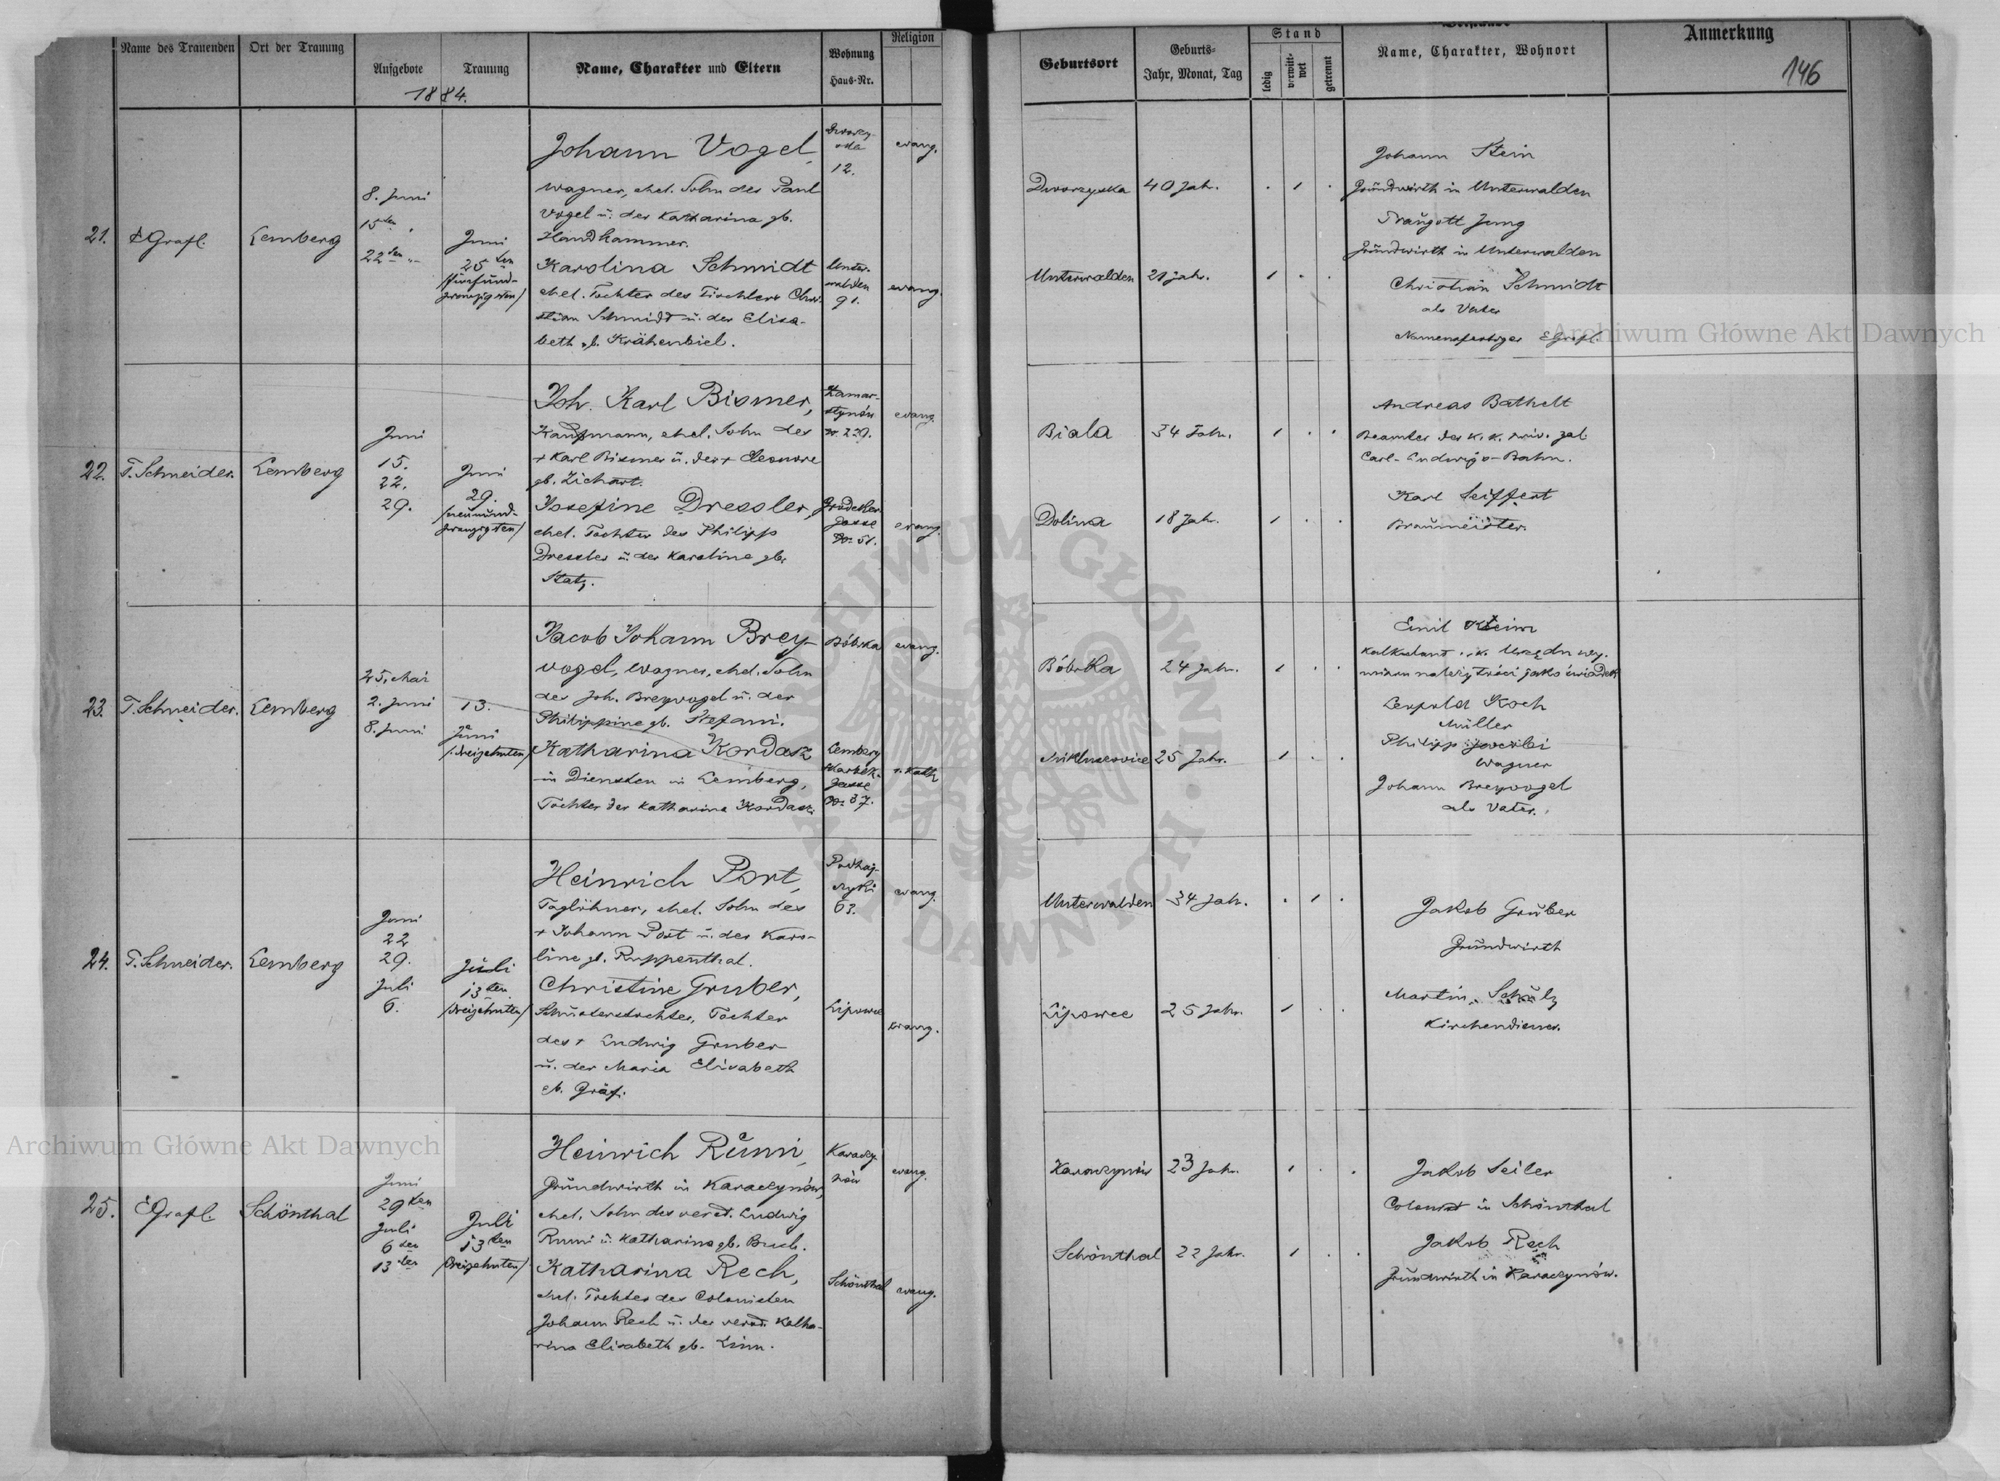 Name des Trauenden
Ort der Trauung
Aufgebote
Trauung
1884.
Name, Charakter und Eltern
Wohnung
Haus-Nr.
Religion
Geburtsort
Geburts-
Jahr, Monat, Tag
Stand
ledig
verwitt-
wet
getrennt
Beistände
Name, Charakter, Wohnort
Anmerkung
146
21.
EGrafl.
Lemberg
8. Juni
15ten "
22ten "
Juni
25ten
/fünfund-
zwanzigsten/
Johann Vogel,
Wagner, ehel. Sohn des Paul
Vogel u. der Katharina gb.
Handkammer.
12.
evang.
Karolina Schmidt
ehel. Tochter des Tischlers Chri-
stian Schmidt u. der Elisa-
beth gb. Krähenbiel.
Unter-
walden
91.
evang.
Dworzyska
40 Jahr.
Unterwalden
21 Jahr.
Johann Stein
Grundwirth in Unterwalden
Traugott Jung
Grundwirth in Unterwalden
Christian Schmidt
als Vater
Namensfertiger EGrafl.
22.
T. Schneider.
Lemberg
Juni
15.
22.
29.
Juni
29.
/neunund-
zwanzigsten/
Joh. Karl Bismer,
Kaufmann, ehel. Sohn des
+ Karl Bismer u. der + Eleonore
gb. Zichart.
Zamar-
stynów
Nr. 239.
evang.
Josefine Dressler,
ehel. Tochter des Philipp
Dressler u. der Karoline gb.
Statz.
Grodeker
Gasse
No. 51.
evang.
Biala
34 Jahr.
Dolina
18 Jahr.
Andreas Bathelt
Beamter der k. k. priv. gal.
Carl-Ludwigs-Bahn.
Karl Seiffert
Braumeister.
23.
T. Schneider.
Lemberg
25. Mai
2. Juni
8. Juni
13.
Juni
/dreizehnten/
Jacob Johann Brey-
vogel, Wagner, ehel. Sohn
des Joh. Breyvogel u. der
Philippine gb. Stefani.
Bóbrka
evang.
Katharina Kordasz
in Diensten in Lemberg,
Tochter der Katharina Kordasz
Lemberg
Gasse
No. 37.
r. kath
Bóbrka
24 Jahr.
25 Jahr.
Emil Kleim
jako świadek
Leopold Koch
Müller
Philipp
Wagner
Johann Breyvogel
als Vater.
24.
T. Schneider.
Lemberg
Juni
22
29.
Juli
6.
Juli
13ten
/dreizehnten/
Heinrich Port,
Taglöhner, ehel. Sohn des
+ Johann Port u. der Karo-
line gb. Ruppenthal.
Podhaj-
czyki
63.
evang.
Christine Gruber,
Schusterstochter, Tochter
des + Ludwig Gruber
u. der Maria Elisabeth
gb. Gräf.
Lipowce
evang.
Unterwalden
34 Jahr.
Lipowce
25 Jahr.
Jakob Gruber
Grundwirth
Martin Schulz
Kirchendiener.
25.
EGrafl.
Schönthal
Juni
29ten
Juli
6ten
13ten
Juli
13ten
/dreizehnten/
Heinrich Rumi,
Grundwirth in Karaczynów,
ehel. Sohn des verst. Ludwig
Rumi u. Katharina gb. Bueb.
Karaczy-
nów
evang.
Katharina Rech,
ehel. Tochter des Colonisten
Johann Rech u. der verst. Katha-
rina Elisabeth gb. Linn.
Schönthal
evang.
Karaczynów
23 Jahr.
Schönthal
22 Jahr.
Jakob Seiler
Colonist in Schönthal
Jakob Rech
Grundwirth in Karaczynów.
Archiwum Główne Akt Dawnych
Archiwum Główne Akt Dawnych
ARCHIWUM GŁÓWNE AKT DAWNYCH